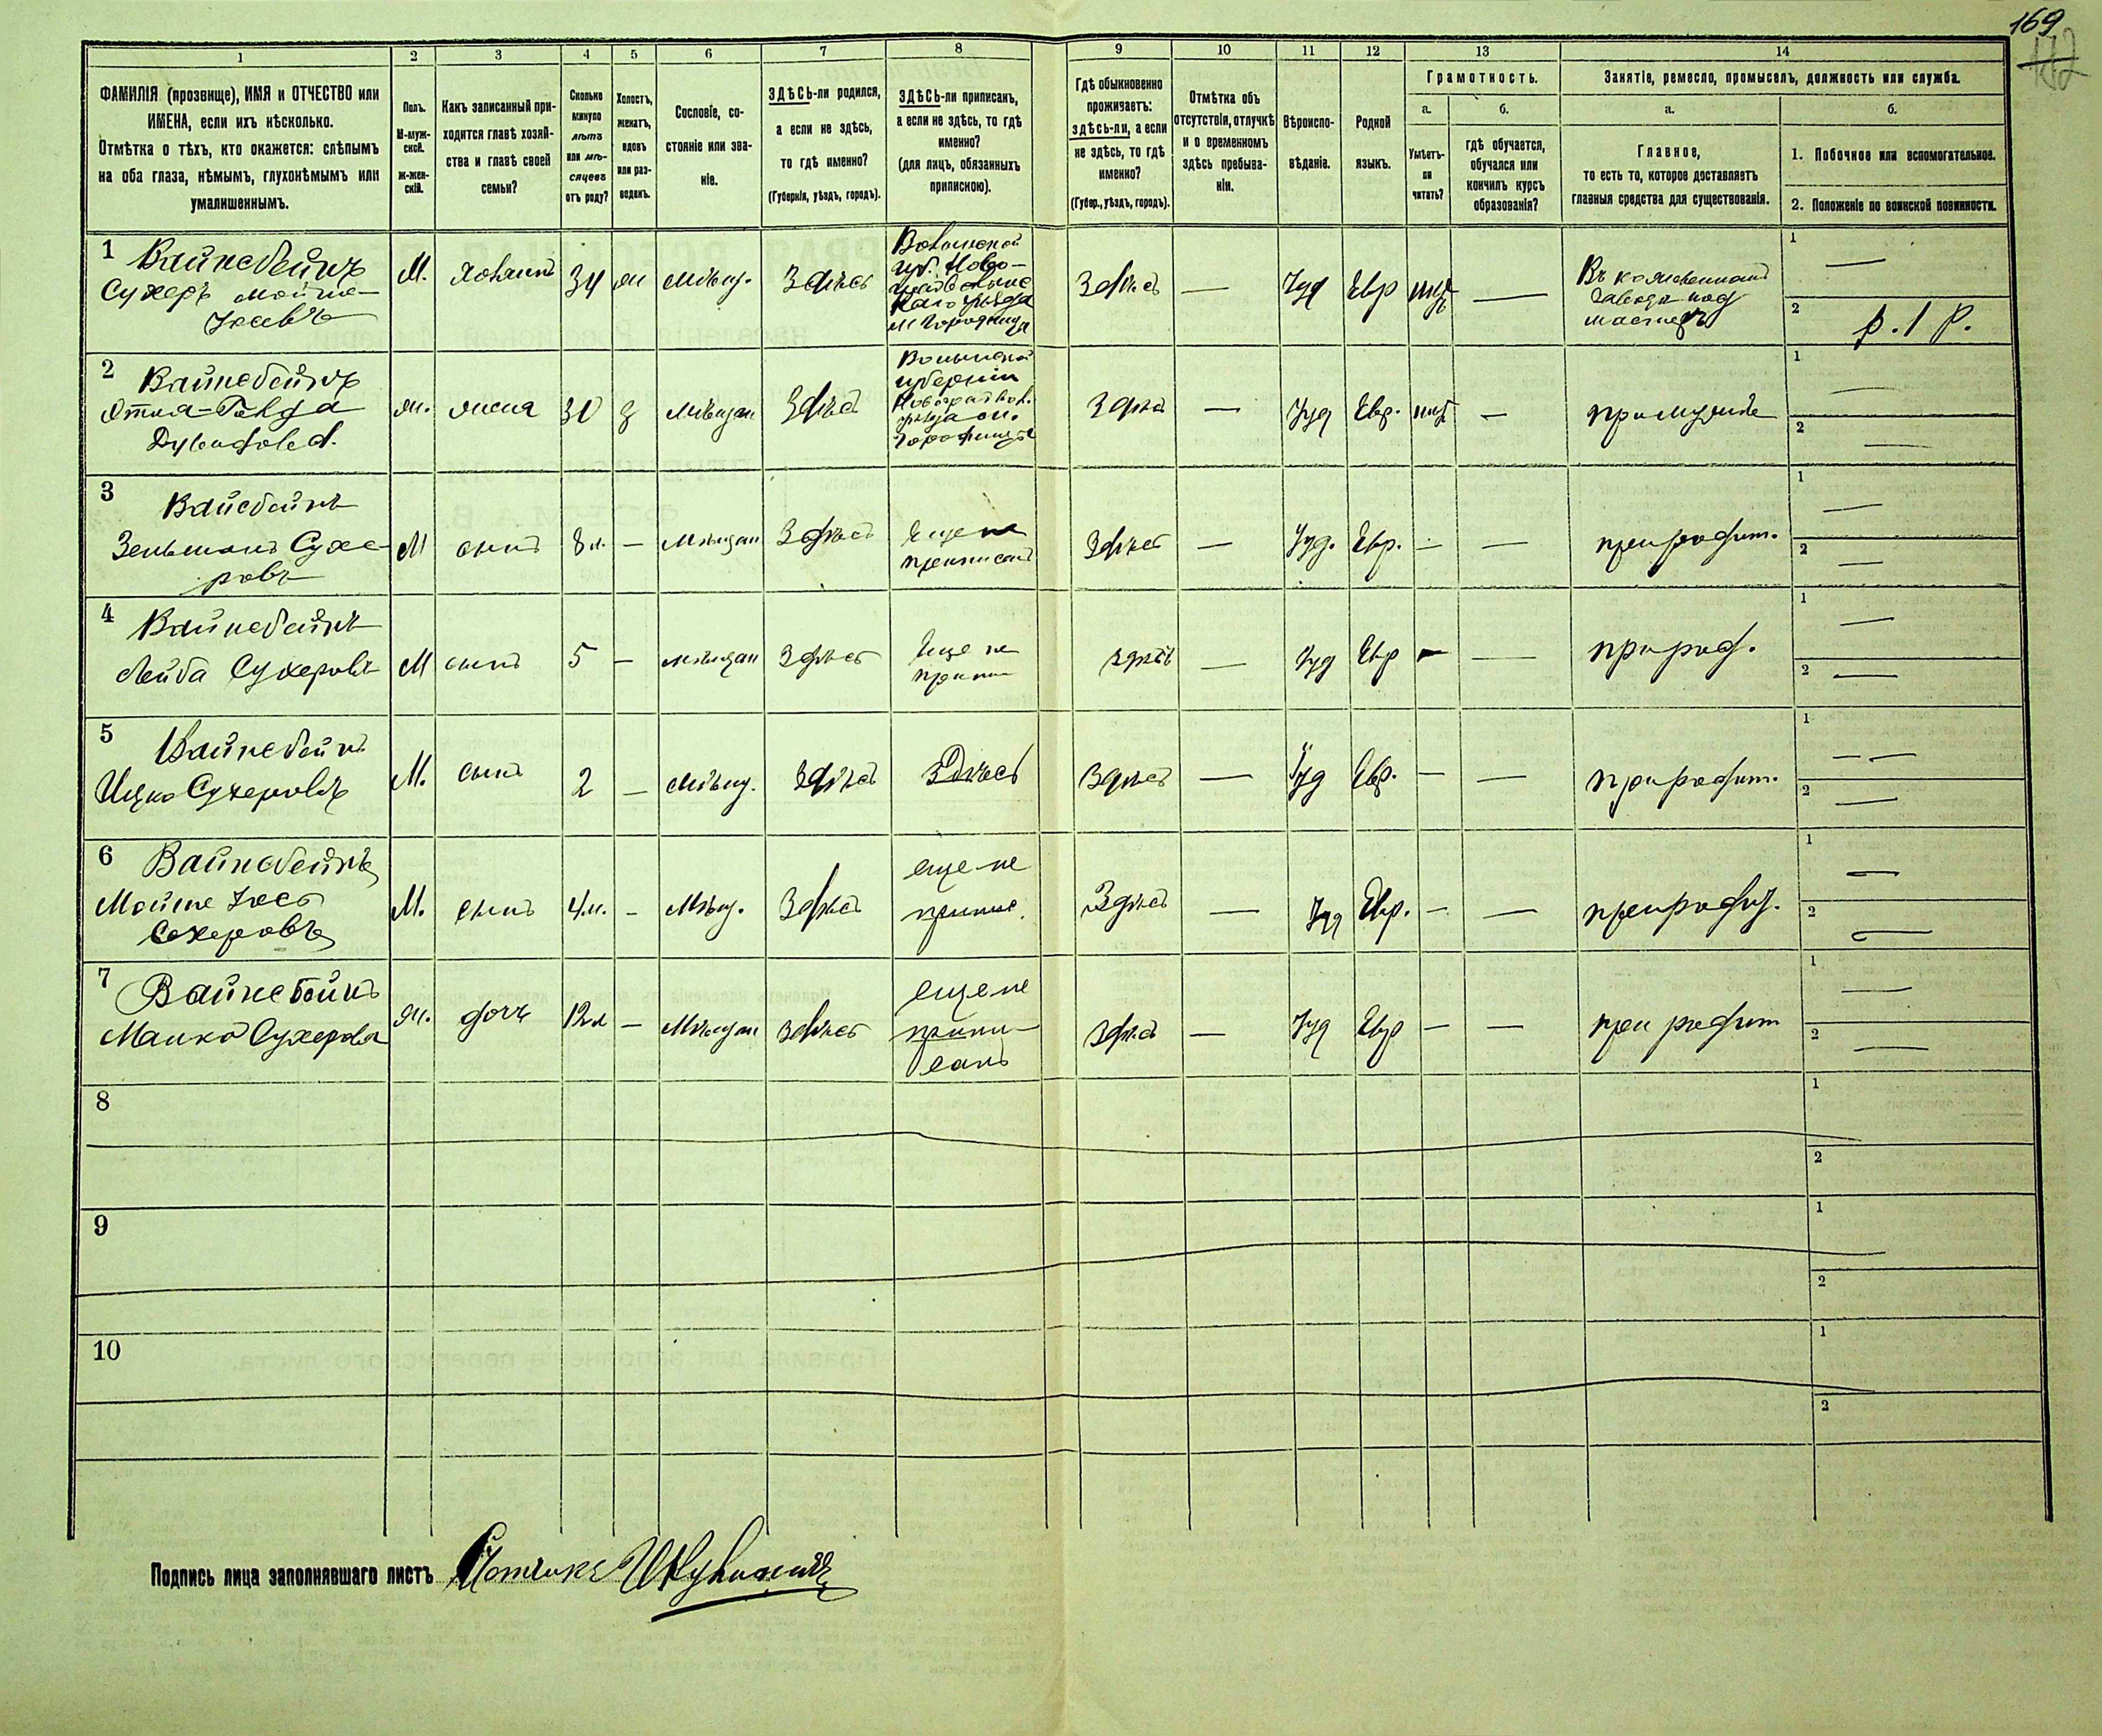 169
172
1
2
3
4
5
6
7
8
9
10
11
12
13
14
ФАМИЛІЯ (прозвище), ИМЯ и ОТЧЕСТВО или
ИМЕНА, если ихъ нѣсколько.
Отмѣтка о тѣхъ, кто окажется: слѣпымъ
на оба глаза, нѣмымъ, глухонѣмымъ или
умалишеннымъ.
Полъ.
М-муж-
ской.
Ж-жен-
скій.
Какъ записанный при-
ходится главѣ хозяй-
ства и главѣ своей
семьи?
Сколько
минуло
лѣтъ
или мѣ-
сяцевъ
отъ роду?
Холостъ,
женатъ,
вдовъ
или раз-
веденъ.
Сословіе, со-
стояніе или зва-
ніе.
ЗДѢСЬ-ли родился,
а если не здѣсь,
то гдѣ именно?
(Губернія, уѣздъ, городъ).
ЗДѢСЬ-ли приписанъ,
а если не здѣсь, то гдѣ
именно?
(для лицъ, обязанныхъ
припискою).
Гдѣ обыкновенно
проживаетъ:
здѣсь-ли, а если
не здѣсь, то гдѣ
именно?
(Губер., уѣздъ, городъ).
Отмѣтка объ
отсутствіи, отлучкѣ
и о временномъ
здѣсь пребыва-
ніи.
Вѣроиспо-
вѣданіе.
Родной
языкъ.
Грамотность.
а.
Умѣетъ-
ли
читать?
б.
гдѣ обучается,
обучался или
кончилъ курсъ
образованія?
Занятіе, ремесло, промыселъ, должность или служба.
а.
Главное,
то есть то, которое доставляетъ
главныя средства для существованія.
б.
1. Побочное или вспомогательное.
2. Положеніе по воинской повинности.
1 Вайнсбейнъ
Сухеръ Мойше-
М. 34 мѣщ. Здѣсь
Волынской
губ. Ново-
уѣзда
м Городница
Здѣсь — Іуд Евр —
1 —
2 р. 1 р.
2 Вайнсбейнъ
ж. жена 30 мѣщан Здѣсь
Волынской
губерніи
уѣзда м.
Здѣсь — Іуд Евр. —
1 —
2 —
3 Вайсбейнъ
Зельманъ Сухе-
ровъ
М сынъ 8 л. — мѣщан Здѣсь
Еще не
приписанъ
Здѣсь — Іуд. Евр. — — при родит.
1 —
2 —
4 Вайнсбейнъ
Лейба Сухеровъ
М сынъ 5 — мѣщан Здѣсь
Еще не
припи
здѣсь — Іуд Евр — — при род.
1 —
2 —
5 Вайнсбейнъ
Ицко Сухеровъ
М. сынъ 2 — мѣщ. Здѣсь
Здѣсь
Здѣсь — Іуд Евр. — — при родит.
1 —
2 —
6 Вайнсбейнъ
Мойше Іосъ
Сохеровъ
М. сынъ 4 м. — Мѣщ. Здѣсь
еще не
припис.
Здѣсь — Іуд Евр. — — при родит.
1 —
2 —
7 Вайнсбейнъ
Малка Сухерова
ж. дочь 12 л — Мѣщан Здѣсь
еще не
припи-
санъ
Здѣсь — Іуд Евр — — при родит
1 —
2 —
8
1
2
9
1
2
10
1
2
Подпись лица заполнявшаго листъ